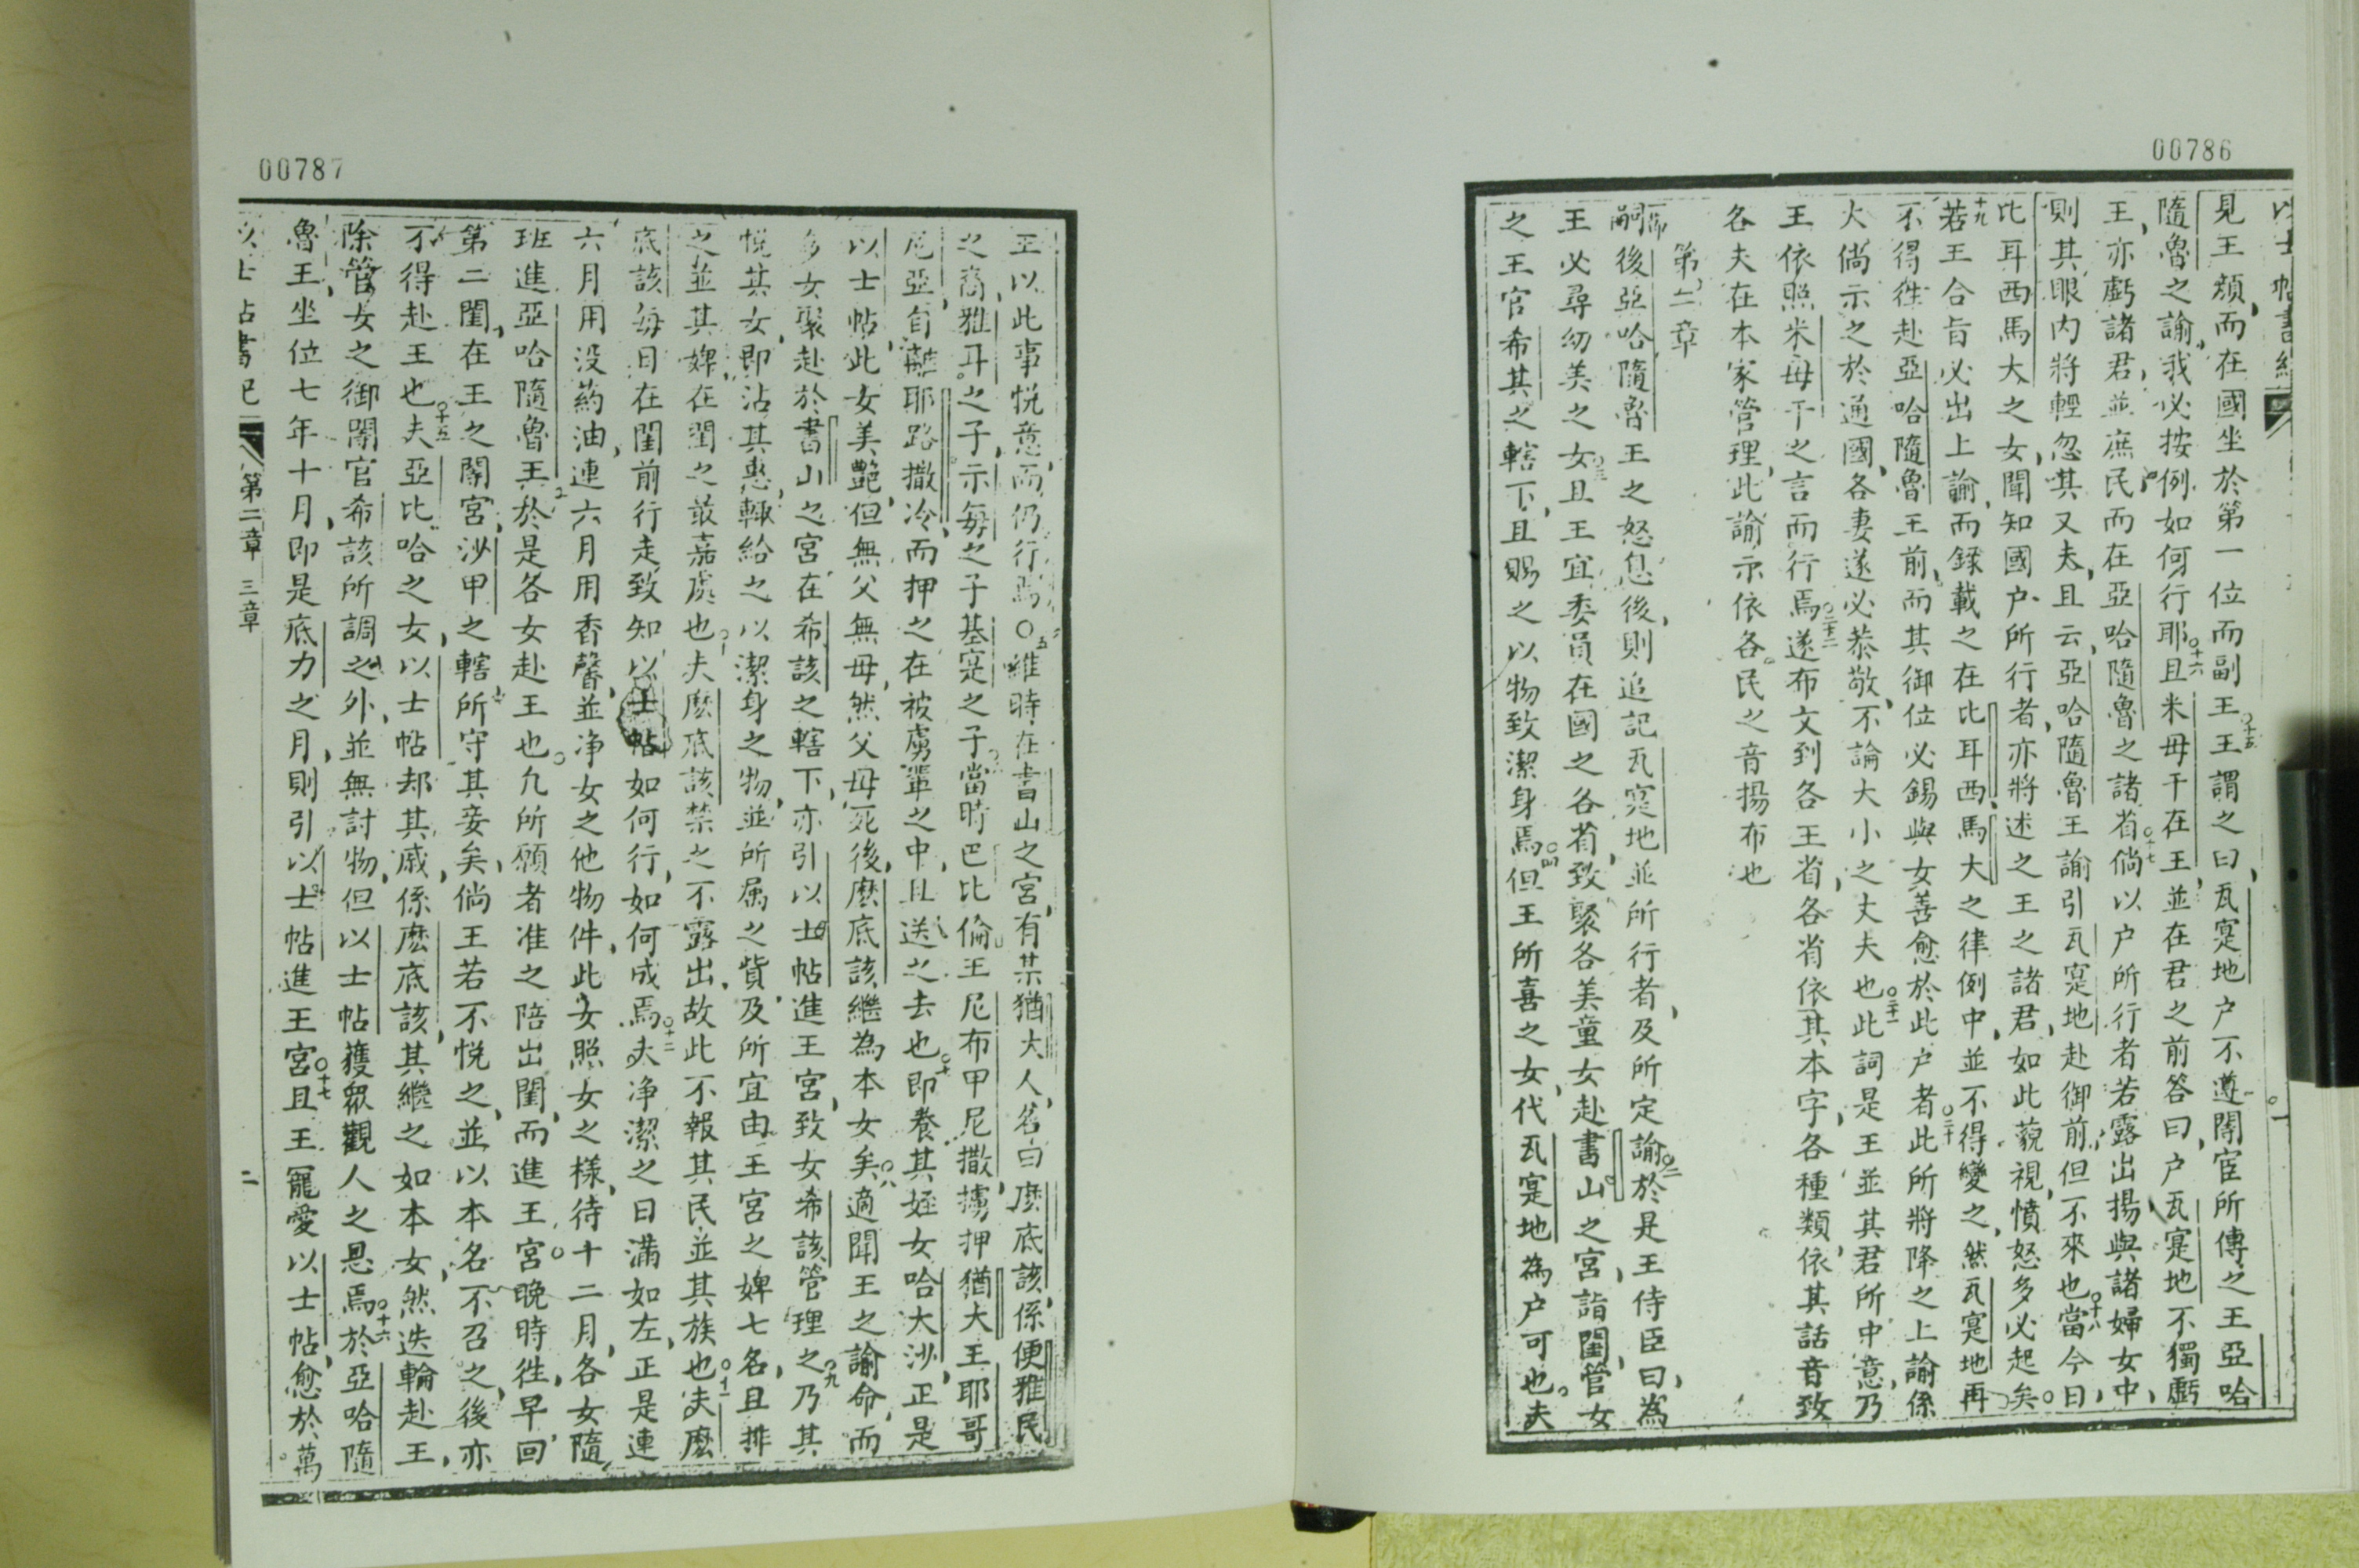 00786
以士帖書
見王頰而在國坐於第一位而副王○十五王謂之曰瓦寔地户不遵閹宦所傳之王亞哈
隨魯之諭我必按例如何行耶○十六且米毋干在王並在君之前答曰户瓦寔地不獨虧
王亦虧諸君並庶民而在亞哈隨魯之諸省○十七倘以户所行者若露出揚與諸婦女中
則其眼内將輕忽其又夫且云亞哈隨魯王諭引瓦寔地赴御前但不來也○十八當今日
比耳西馬大之女聞知國户所行者亦將述之王之諸君如此藐視憤怒多必起矣○
十九若王合旨必出上諭而錄載之在比耳西馬大之律例中並不得變之然瓦寔地再
不得徃赴亞哈隨魯王前而其御位必錫與女善愈於此户者○二十此所將降之上諭係
大倘示之於通國各妻遂必恭敬不論大小之丈夫也○二十一此詞是王並其君所中意乃
王依照米毋干之言而行焉○二十二遂布文到各王省各省依其本字各種類依其話音致
各夫在本家管理此諭示依各民之音揚布也
第二章
嗣後亞哈隨魯王之怒息後則追記瓦寔地並所行者及所定諭○二於是王侍臣曰為
王必尋幼美之女○三且王宜委員在國之各省致聚各美童女赴書山之宮詣閨管女
之王官希其之轄下且賜之以物致潔身焉○四但王所喜之女代瓦寔地為户可也夫
00787
王以此事悦意而仍行焉○五維時在書山之宮有某猶大人名曰麽底該係便雅民
之裔雅耳之子示每之子基寔之子○六當時巴比倫王尼布甲尼撒擄押猶大王耶哥
尼亞自耶路撒冷而押之在被虜輩之中且送之去也○七即養其姪女哈大沙正是
以士帖此女美艷但無父無母然父母死後麽底該繼為本女矣○八適聞王之諭命而
多女聚赴於書山之宮在希該之轄下亦引以士帖進王宮致女希該管理之○九乃其
悅其女即沾其惠輙給之以潔身之物並所属之貲及所宜由王宮之婢七名且排
之並其婢在閨之最嘉處也○十夫麽底該禁之不露出故此不報其民並其族也○十一夫麽
底該每日在閨前行走致知以士帖如何行如何成焉○十二夫净潔之日滿如左正是連
六月用没葯油連六月用香馨並净女之他物件此女照女之樣待十二月各女隨
班進亞哈隨魯王於是各女赴王也凢所願者准之陪出閨而進王宮○晚時徃早回
第二閨在王之閹宮沙甲之轄所守其妾矣倘王若不悅之並以本名不召之後亦
不得赴王也○十五夫亞比哈之女以士帖却其戚係麽底該其繼之如本女然迭輪赴王
除管女之御閹官希該所調之外並無討物但以士帖獲眾觀人之恩焉○十六於亞哈隨
魯王坐位七年十月即是底力之月則引以士帖進王宮○十七且王寵愛以士帖愈於萬
以士帖書 第二章 三章 二